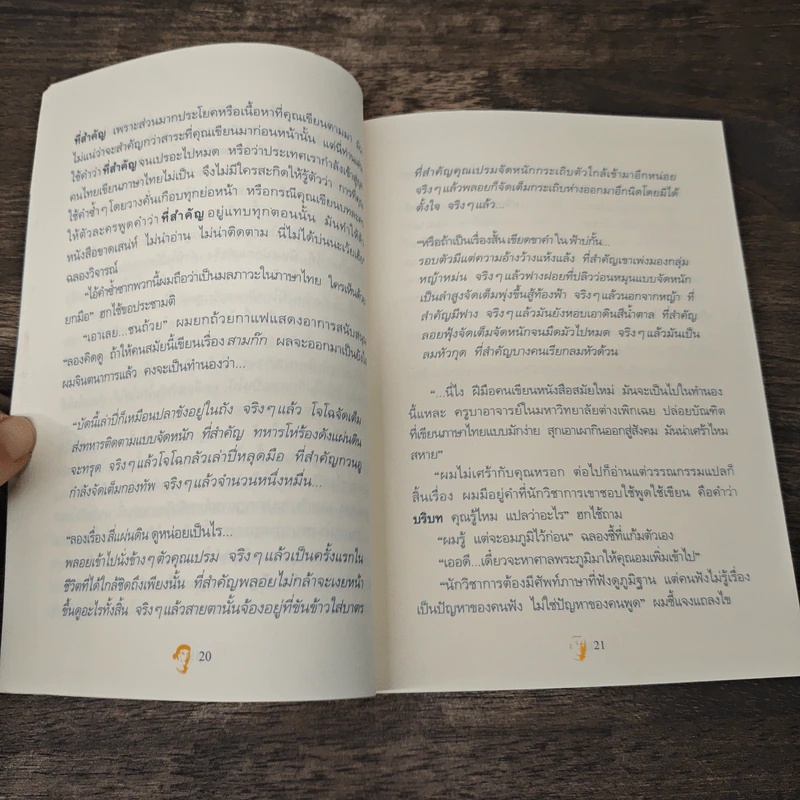 ที่สำคัญ เพราะส่วนมากประโยคหรือเนื้อหาที่คุณเขียนตามมา
ไม่แน่ว่าจะสำคัญกว่าสาระที่คุณเขียนมาก่อนหน้านั้น แต่นี่ท่าน
ใช้คำว่า ที่สำคัญ จนเปรอะไปหมด หรือว่าประเทศเรากำลังเข้าสู่
คนไทยเขียนภาษาไทยไม่เป็น จึงไม่มีใครสะกิดให้รู้ตัวว่า การ
ใช้คำซ้ำๆ โดยวางคั่นเกือบทุกย่อหน้า หรือกรณีคุณเขียนบท
ให้ตัวละครพูดคำว่า ที่สำคัญ อยู่แทบทุกตอนนั้น มันทำให้
หนังสือขาดเสน่ห์ ไม่น่าอ่าน ไม่น่าติดตาม นี่ไม่ได้บ่นนะเว้ย
ฉลองวิจารณ์
“ไอ้คำซ้ำซากพวกนี้ผมถือว่าเป็นมลภาวะในภาษาไทย ใครเห็นด้วย
ยกมือ” ฮกไช้ขอประชามติ
“เอาเลย...ชนถ้วย” ผมยกถ้วยกาแฟแสดงอาการสนับสนุน
“ลองคิดดู ถ้าให้คนสมัยนี้เขียนเรื่อง สามก๊ก ผลจะออกมาเป็นยังไง
ผมจินตนาการแล้ว คงจะเป็นทำนองว่า...
“บัดนี้เล่าปี่ก็เหมือนปลาขังอยู่ในถัง จริงๆ แล้ว โจโฉจัดเต็ม
ส่งทหารติดตามแบบจัดหนัก ที่สำคัญ ทหารโห่ร้องดังแผ่นดิน
จะทรุด จริงๆ แล้วโจโฉกลัวเล่าปี่หลุดมือ ที่สำคัญกวนอู
กำลังจัดเต็มกองทัพ จริงๆ แล้วจำนวนหนึ่งหมื่น...
“ลองเรื่อง สี่แผ่นดิน ดูหน่อยเป็นไร...
พลอยเข้าไปนั่งข้างๆ ตัวคุณเปรม จริงๆ แล้วเป็นครั้งแรกใน
ชีวิตที่ได้ใกล้ชิดถึงเพียงนั้น ที่สำคัญพลอยไม่กล้าจะเงยหน้า
ขึ้นดูอะไรทั้งสิ้น จริงๆ แล้วสายตานั้นจ้องอยู่ที่ขันข้าวใส่บาตร
20
ที่สำคัญคุณเปรมจัดหนักกระเถิบตัวใกล้เข้ามาอีกหน่อย
จริงๆ แล้วพลอยก็จัดเต็มกระเถิบห่างออกมาอีกนิดโดยมิได้
ตั้งใจ จริงๆ แล้ว...
“หรือถ้าเป็นเรื่องสั้น เขียดขาคำ ใน ฟ้าบ่กั้น...
รอบตัวมีแต่ความอ้างว้างแห้งแล้ง ที่สำคัญเขาเพ่งมองกลุ่ม
หญ้าหม่น จริงๆ แล้วฟางฝอยที่ปลิวว่อนหมุนแบบจัดหนัก
เป็นลำสูงจัดเต็มพุ่งขึ้นสู้ท้องฟ้า จริงๆ แล้วนอกจากหญ้า ที่
สำคัญมีฟาง จริงๆ แล้วมันยังหอบเอาดินสีน้ำตาล ที่สำคัญ
ลอยฟุ้งจัดเต็มจัดหนักจนมืดมัวไปหมด จริงๆ แล้วมันเป็น
ลมหัวกุด ที่สำคัญบางคนเรียกลมหัวด้วน
“...นี่ไง ฝีมือคนเขียนหนังสือสมัยใหม่ มันจะเป็นไปในทำนอง
นี้แหละ ครูบาอาจารย์ในมหาวิทยาลัยต่างเพิกเฉย ปล่อยบัณฑิต
ที่เขียนภาษาไทยแบบมักง่าย สุกเอาเผากินออกสู่สังคม มันน่าเศร้าไหม
สหาย”
“ผมไม่เศร้ากับคุณหรอก ต่อไปก็อ่านแต่วรรณกรรมแปลก็
สิ้นเรื่อง ผมมีอยู่คำที่นักวิชาการเขาชอบใช้พูดใช้เขียน คือคำว่า
บริบท คุณรู้ไหม แปลว่าอะไร” ฮกไช้ถาม
“ผมรู้ แต่จะอมภูมิไว้ก่อน” ฉลองชี้ที่แก้มตัวเอง
“เออดี...เดี๋ยวจะหาศาลพระภูมิมาให้คุณอมเพิ่มเข้าไป”
“นักวิชาการต้องมีศัพท์ภาษาที่ฟังดูภูมิฐาน แต่คนฟังไม่รู้เรื่อง
เป็นปัญหาของคนฟัง ไม่ใช่ปัญหาของคนพูด” ผมชี้แจงแถลงไข
21